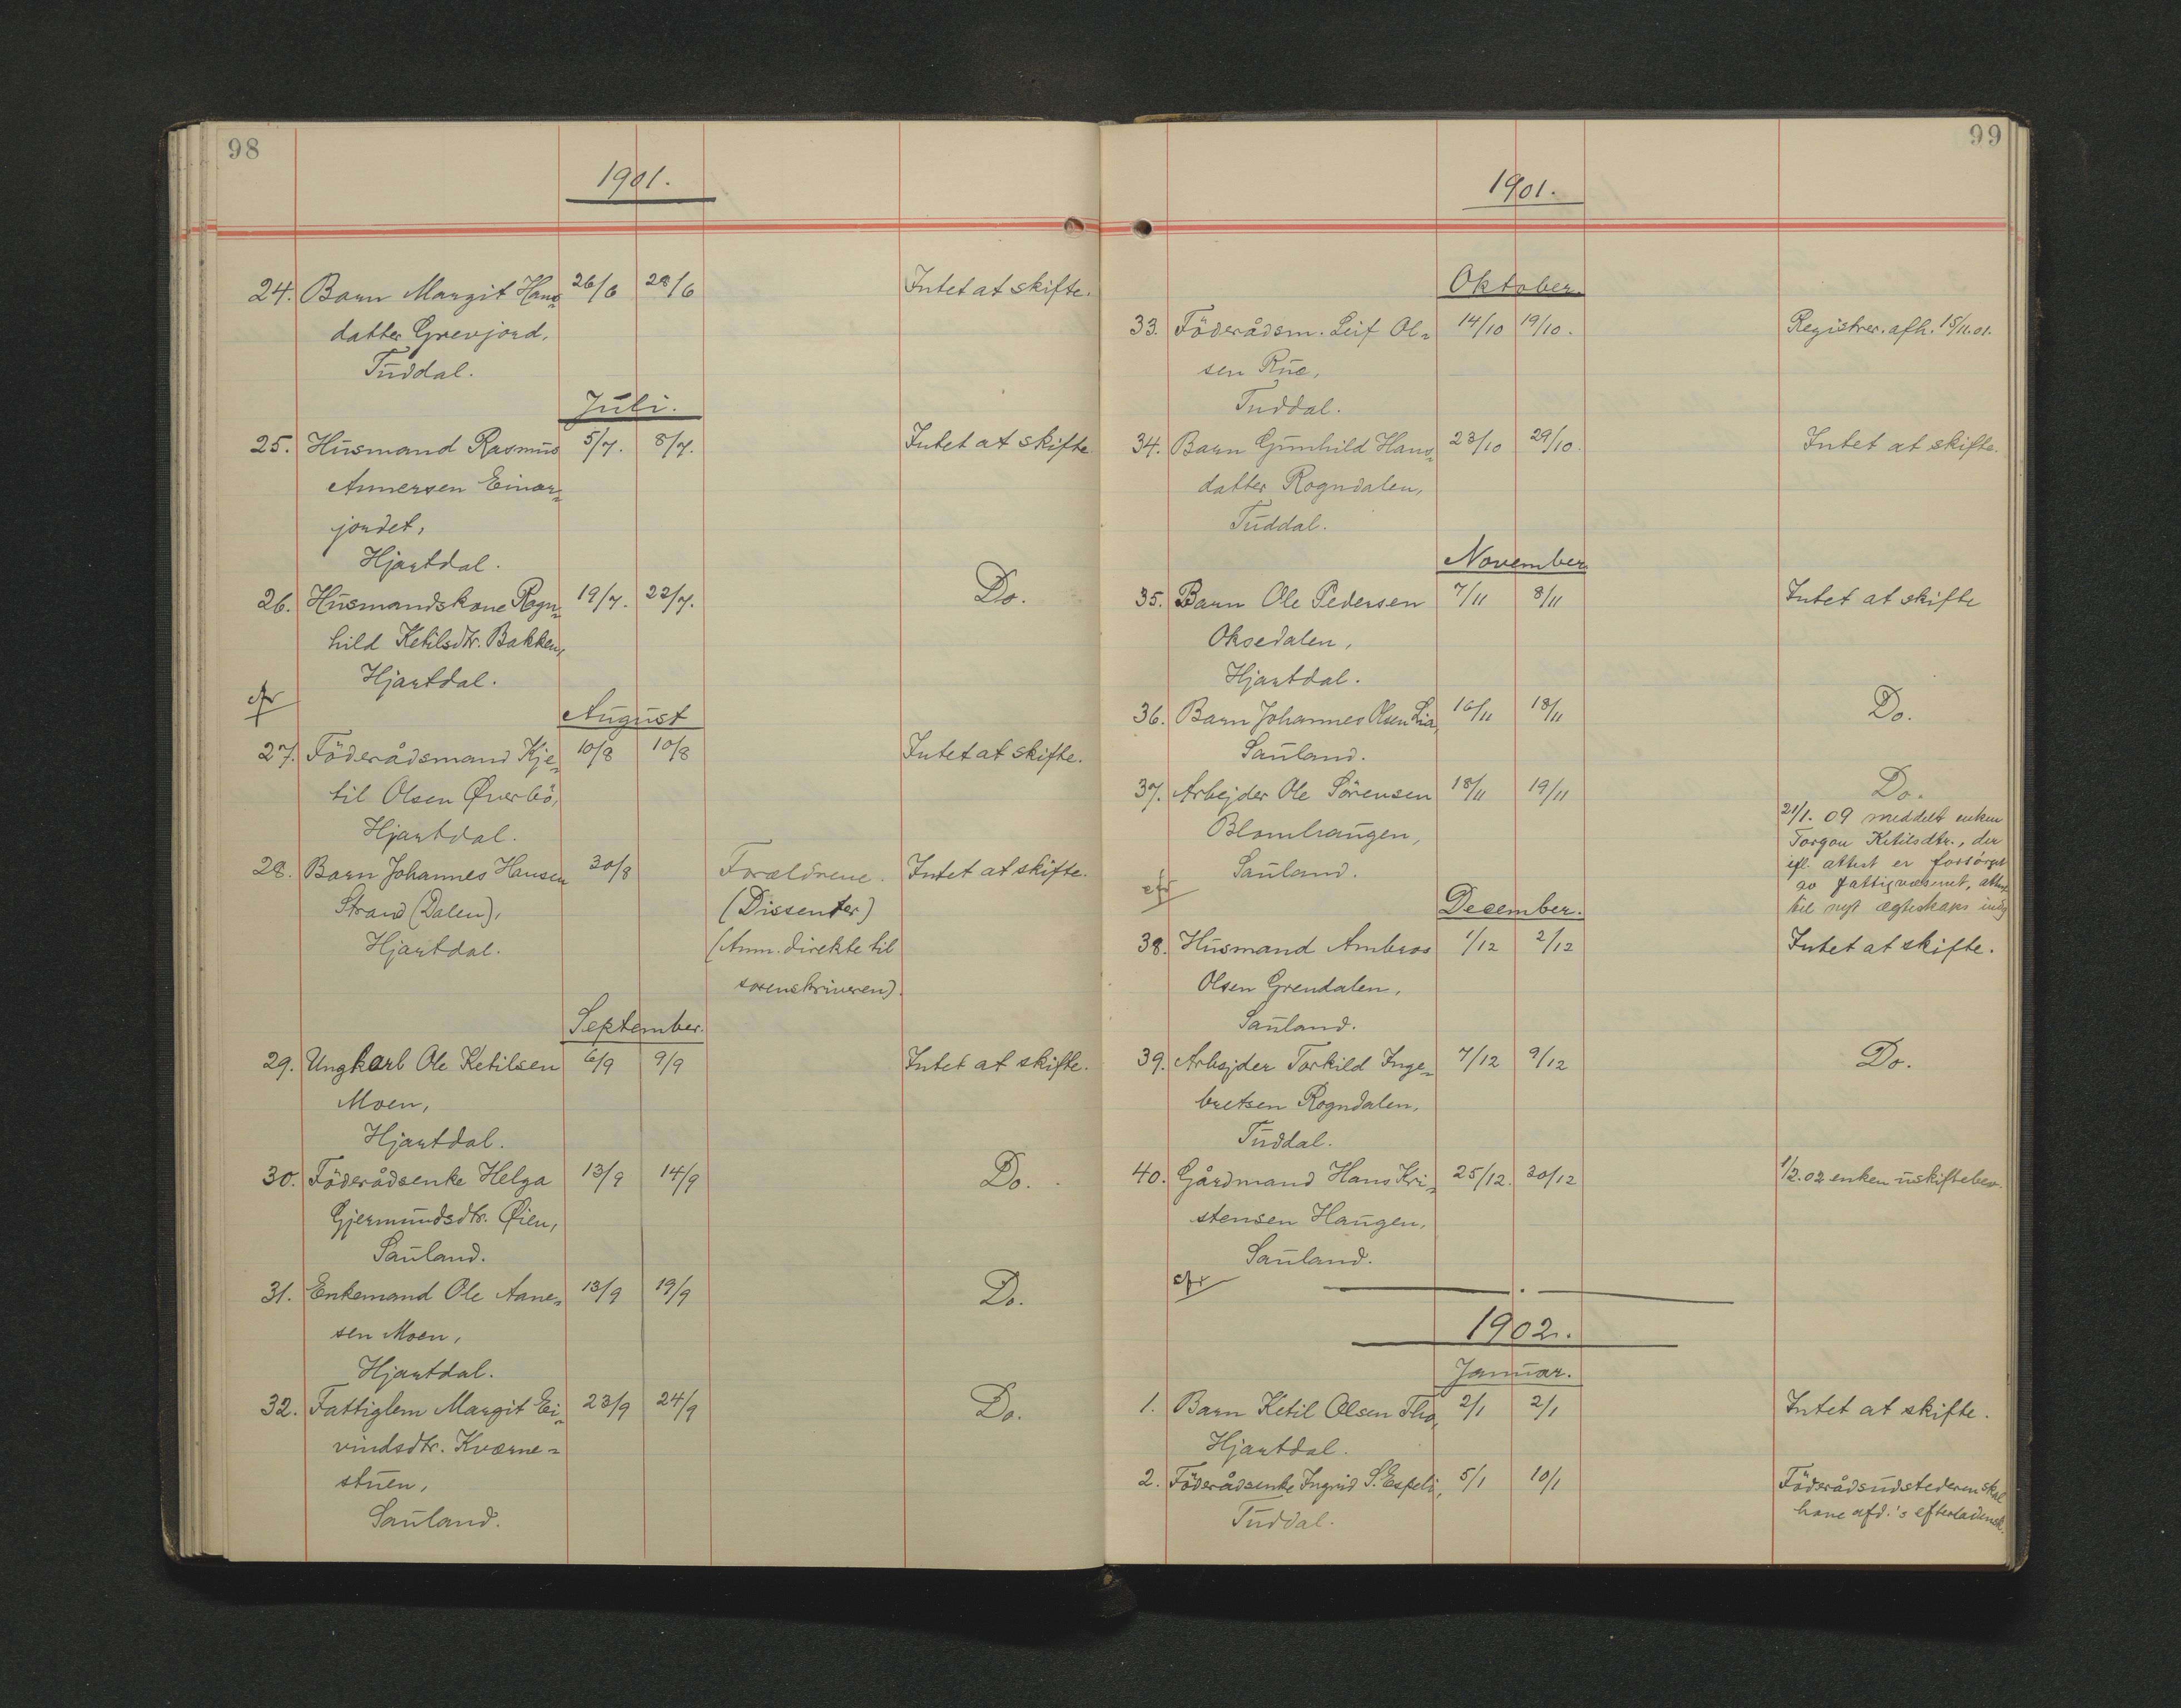 98
1901.
24. Barn Margit Hans= 26/6 28/6 Intet at skifte.
datter Grevjord,
Tuddal.
Juli.
25. Husmand Rasmus 5/7. 8/7. Intet at skifte
Annersen Einar=
jordet,
Hjartdal.
26. Husmandskone Ragn= 19/7. 22/7. Do.
hild Ketilsdtr. Bakken,
Hjartdal.
cfr
August
27. Föderådsmand Kje= 10/8 10/8 Intet at skifte.
til Olsen Øverbö,
Hjartdal.
28. Barn Johannes Hansen 30/8 Forældrene. Intet at skifte.
Strand (Dalen), (Dissenter)
Hjartdal. (Anm. direkte til
sorenskriveren).
September.
29. Ungkarl Ole Ketilsen 6/9 9/9 Intet at skifte.
Moen,
Hjartdal.
30. Föderådsenke Helga 13/9 14/9 Do.
Gjermundsdtr. Øien,
Sauland.
31. Enkemand Ole Aane= 13/9 19/9 Do.
sen Moen,
Hjartdal.
32. Fattiglem Margit Ei= 23/9 24/9 Do.
vindsdtr. Kværne=
stuen,
Sauland.
99
1901.
Oktober.
33. Föderådsm. Leif Ol= 14/10 19/10. Registrer. afh. 15/11.01.
sen Rue,
Tuddal.
34. Barn Gunhild Hans= 23/10 29/10. Intet at skifte.
datter Rogndalen,
Tuddal.
November
35. Barn Ole Pedersen 7/11 8/11 Intet at skifte
Oksedalen,
Hjartdal.
36. Barn Johannes Olsen Lia, 16/11 18/11 Do.
Sauland.
37. Arbejder Ole Sörensen 18/11 19/11 Do.
Blomhaugen,
Sauland.
21/1. 09 meddelt enken
Torgon Ketilsdtr., der
efl. attest er forsörget
av fattigvæsenet, attest
til nyt ægteskaps indg
cfr
December.
38. Husmand Ambros 1/12 2/12 Intet at skifte.
Olsen Grendalen,
Sauland.
39. Arbejder Torkild Inge= 7/12 9/12 Do.
bretsen Rogndalen,
Tuddal.
40. Gårdmand Hans Kri= 25/12. 30/12 1/2.02 enken uskiftebev.
stensen Haugen,
Sauland.
cfr
1902.
Januar.
1. Barn Ketil Olsen Tho, 2/1 2/1 Intet at skifte.
Hjartdal.
2. Föderådsenke Ingrid S. Espeli, 5/1 10/1 Föderådsudstederen skal
Tuddal. have afd.'s efterladensk.